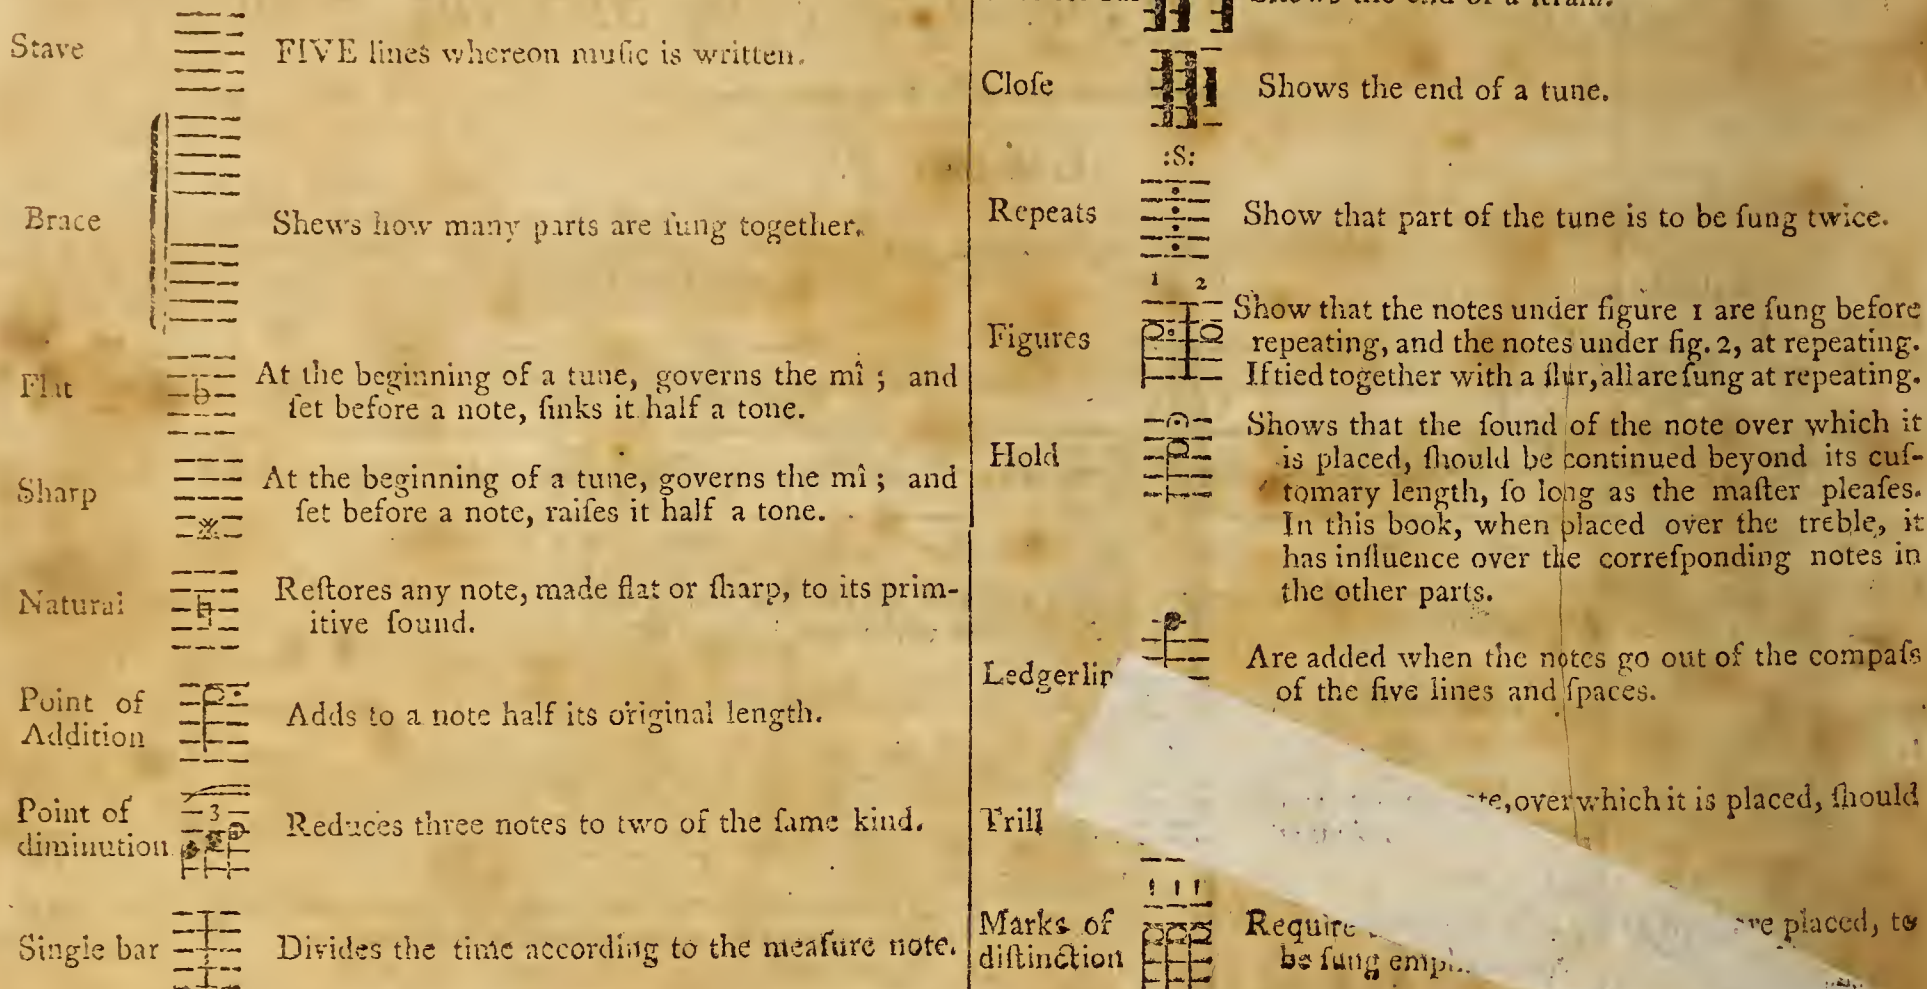 Stave FIVE lines whereon muſic is written.
Brace Shews how many parts are ſung together.
Flat At the beginning of a tune, governs the mi ; and
ſet before a note, ſinks it half a tone.
Sharp At the beginning of a tune, governs the mi ; and
ſet before a note, raiſes it half a tone.
Natural Reſtores any note, made flat or ſharp, to its prim-
itive ſound.
Point of
Addition Adds to a note half its original length.
3
Point of
diminution Reduces three notes to two of the ſame kind.
Single bar Divides the time according to the meaſure note.
Shows the end of a ſtrain.
Cloſe Shows the end of a tune.
:S:
Repeats Show that part of the tune is to be ſung twice.
1 2
Figures Show that the notes under figure 1 are ſung before
repeating, and the notes under fig. 2, at repeating.
If tied together with a ſlur, all are ſung at repeating.
Hold Shows that the ſound of the note over which it
is placed, ſhould be continued beyond its cuſ-
tomary length, ſo long as the maſter pleaſes.
In this book, when placed over the treble, it
has influence over the correſponding notes in
the other parts.
Are added when the notes go out of the compaſs
of the five lines and ſpaces.
Trill over which it is placed, ſhould
Marks of
diſtinction Require placed, to
be ſung